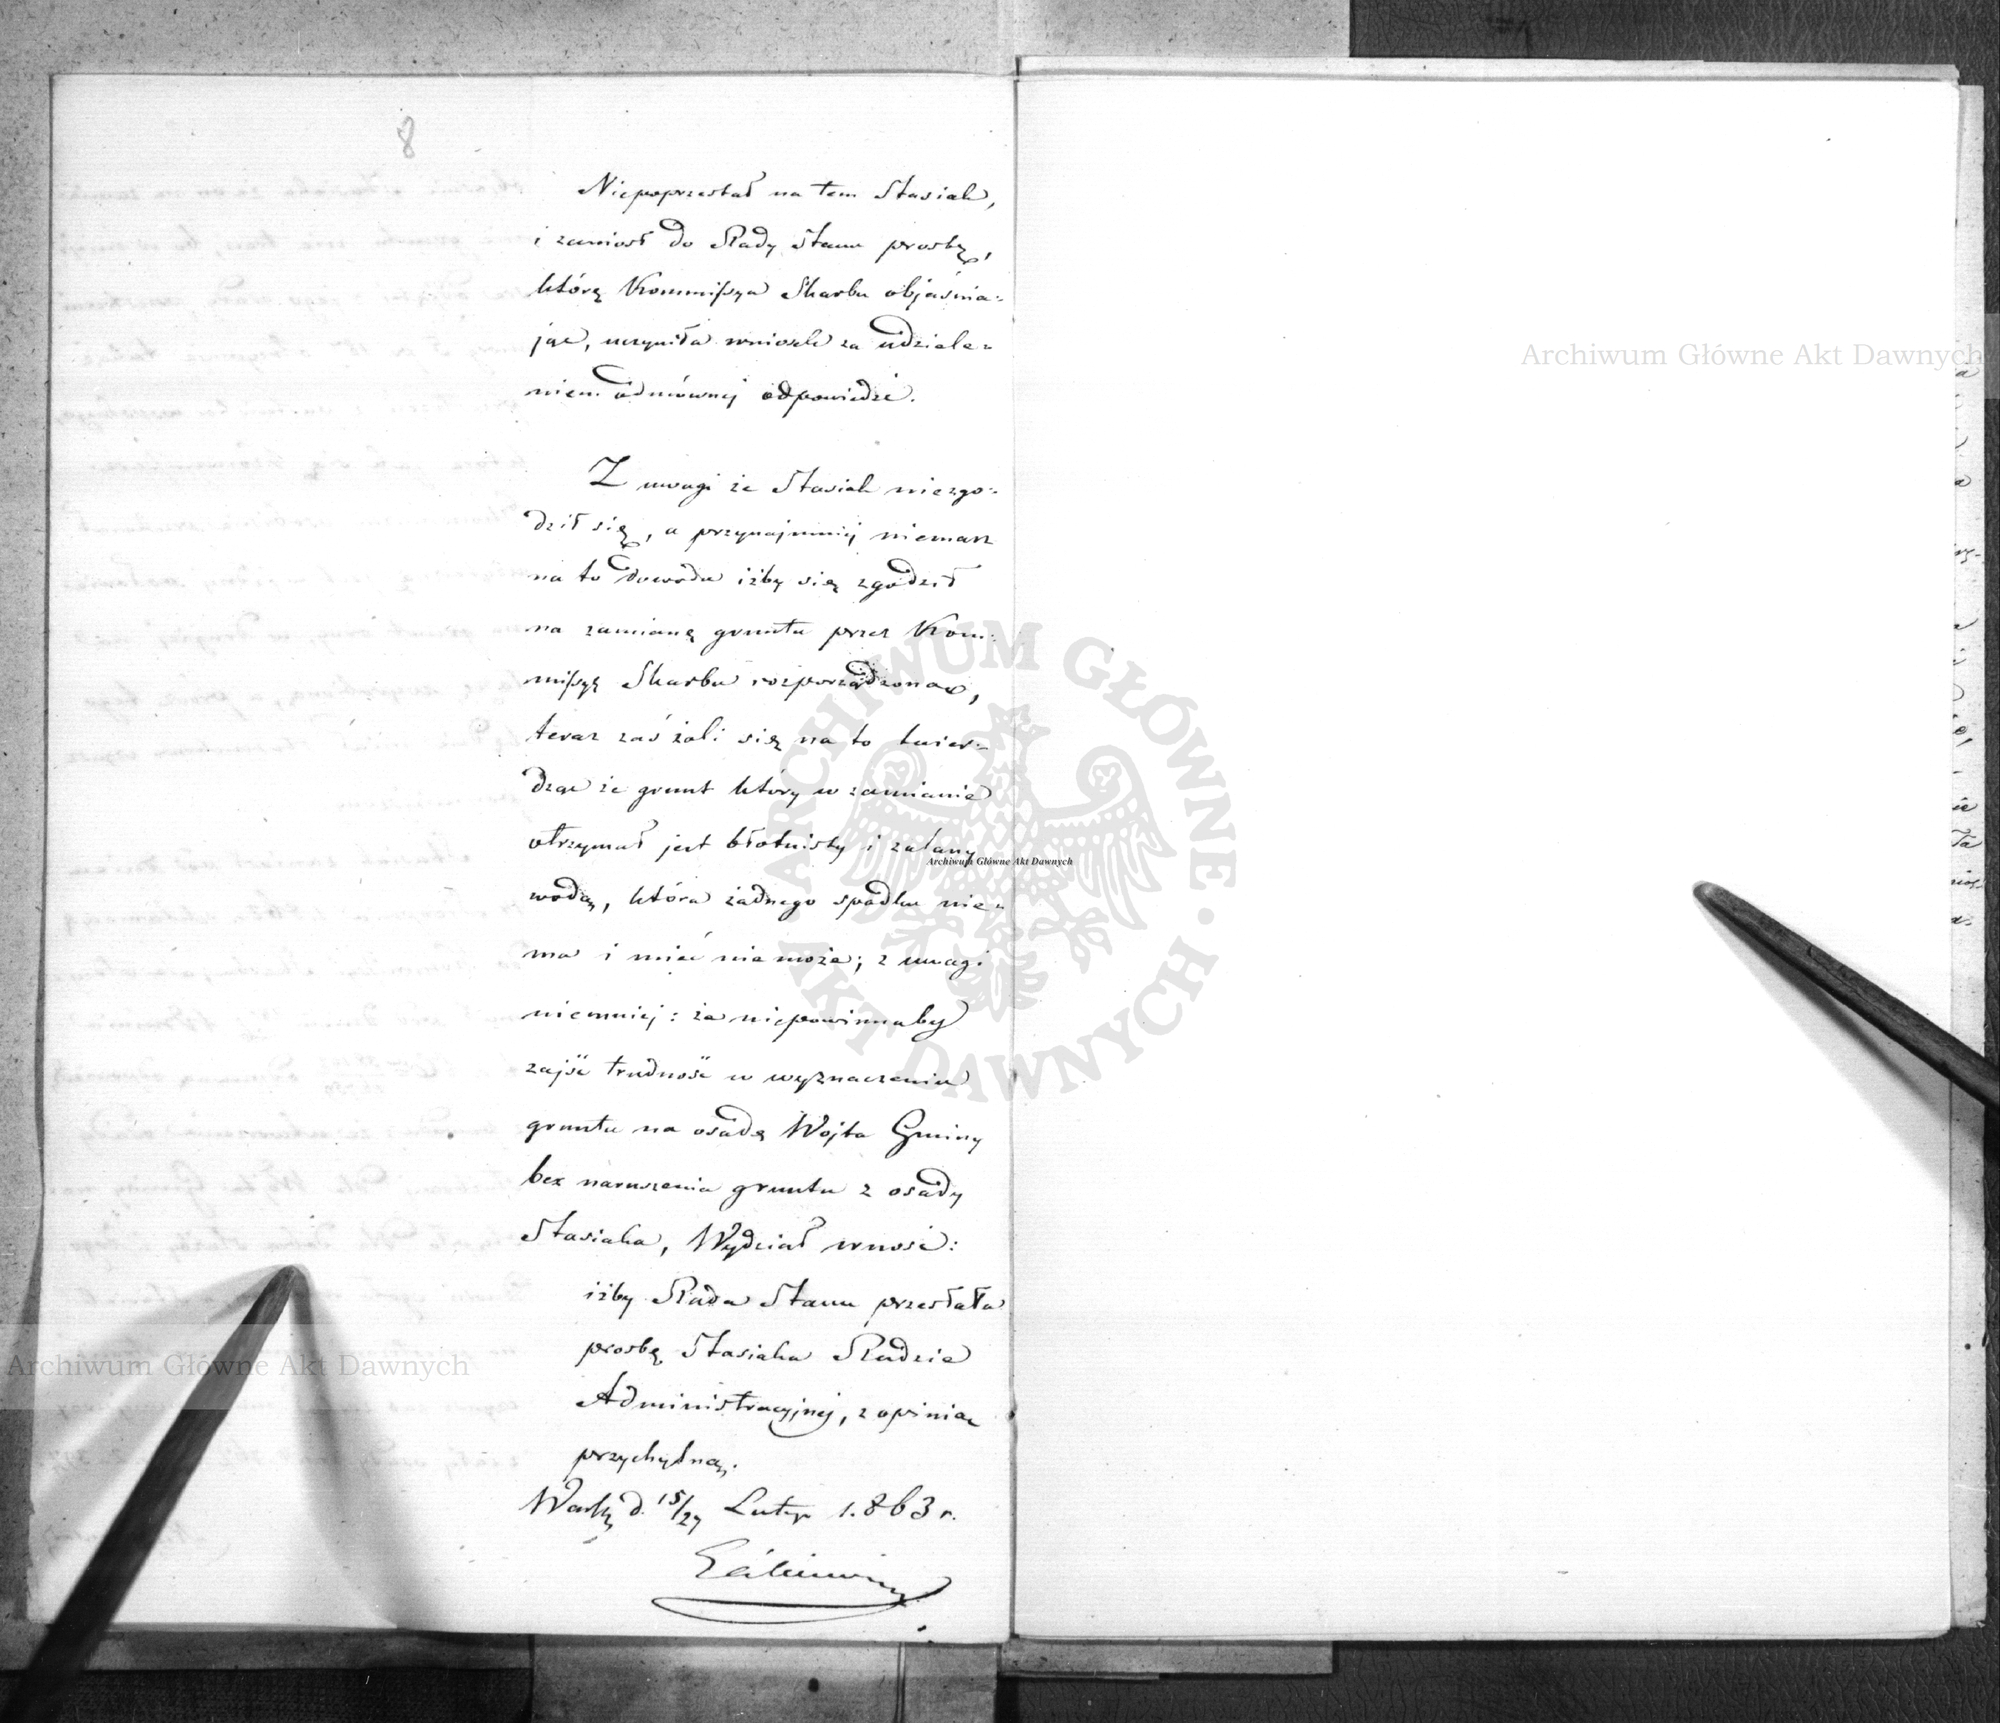 8
Niepoprzestał na tem Stasiak,
i zaniosł do Rady Stanu prosbę,
którę Kommissya Skarbu objaśnia-
jąc, uczyniła wniosek za udziele-
niem odmównej odpowiedzi.
Z uwagi że Stasiak niezgo-
dził się, a przynajmniej niemasz
na to dowodu iżby się zgodził
na zamianę gruntu przez Kom-
missyę Skarbu rozporządzoną,
teraz zaś żali się na to twier-
dząc że grunt który w zamianie
otrzymał jest błotnisty i zalany
wodą, która żadnego spadku nie-
ma i mieć niemoże; z uwagi
niemniej: że niepowinnaby
zajść trudność w wyznaczeniu
gruntu na osadę Wojta Gminy
bez naruszenia gruntu z osady
Stasiaka, Wydział wnosi:
iżby Rada Stanu przesłała
prosbę Stasiaka Radzie
Administracyjnej, z opinią
przychylną.
d. 15/27 Lutego 1863 r.
Archiwum Główne Akt Dawnych
Archiwum Główne Akt Dawnych
Archiwum Główne Akt Dawnych
ARCHIWUM GŁÓWNE · AKT DAWNYCH ·